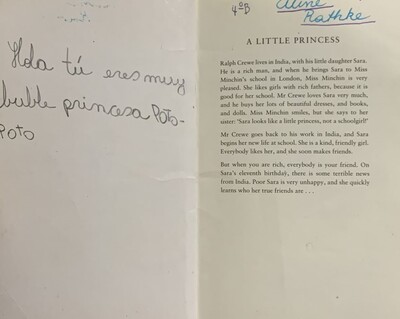 Hola tú eres muy
buble princesa Poto-
Poto
4ºB Aline
Rathke
A LITTLE PRINCESS
Ralph Crewe lives in India, with his little daughter Sara.
He is a rich man, and when he brings Sara to Miss
Minchin's school in London, Miss Minchin is very
pleased. She likes girls with rich fathers, because it is
good for her school. Mr Crewe loves Sara very much,
and he buys her lots of beautiful dresses, and books,
and dolls. Miss Minchin smiles, but she says to her
sister: 'Sara looks like a little princess, not a schoolgirl!'
Mr Crewe goes back to his work in India, and Sara
begins her new life at school. She is a kind, friendly girl.
Everybody likes her, and she soon makes friends.
But when you are rich, everybody is your friend. On
Sara's eleventh birthday, there is some terrible news
from India. Poor Sara is very unhappy, and she quickly
learns who her true friends are . . .